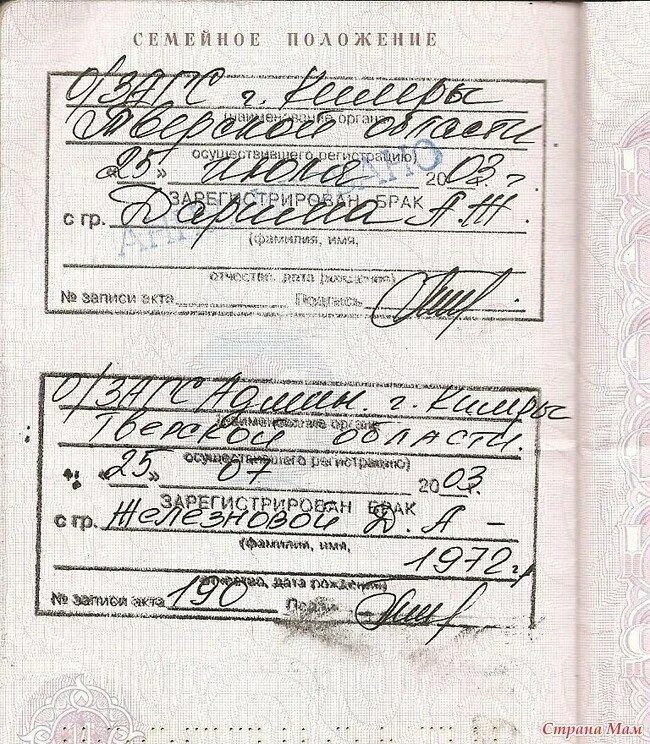 СЕМЕЙНОЕ ПОЛОЖЕНИЕ
О/ЗАГС г. Кимры
(наименование органа
Тверской области
осуществившего регистрацию)
«25» июля 2003 г.
АННУЛИРОВАНО
ЗАРЕГИСТРИРОВАН БРАК
с гр.
(фамилия, имя,
отчество, дата рождения)
№ записи акта Подпись
О/ЗАГС Админ г. Кимры
(наименование органа
Тверской области.
осуществившего регистрацию)
«25» 07 2003 г.
ЗАРЕГИСТРИРОВАН БРАК
с гр. Железновой Д. А –
(фамилия, имя,
1972 г.
отчество, дата рождения)
№ записи акта 190 Подпись
Страна Мам